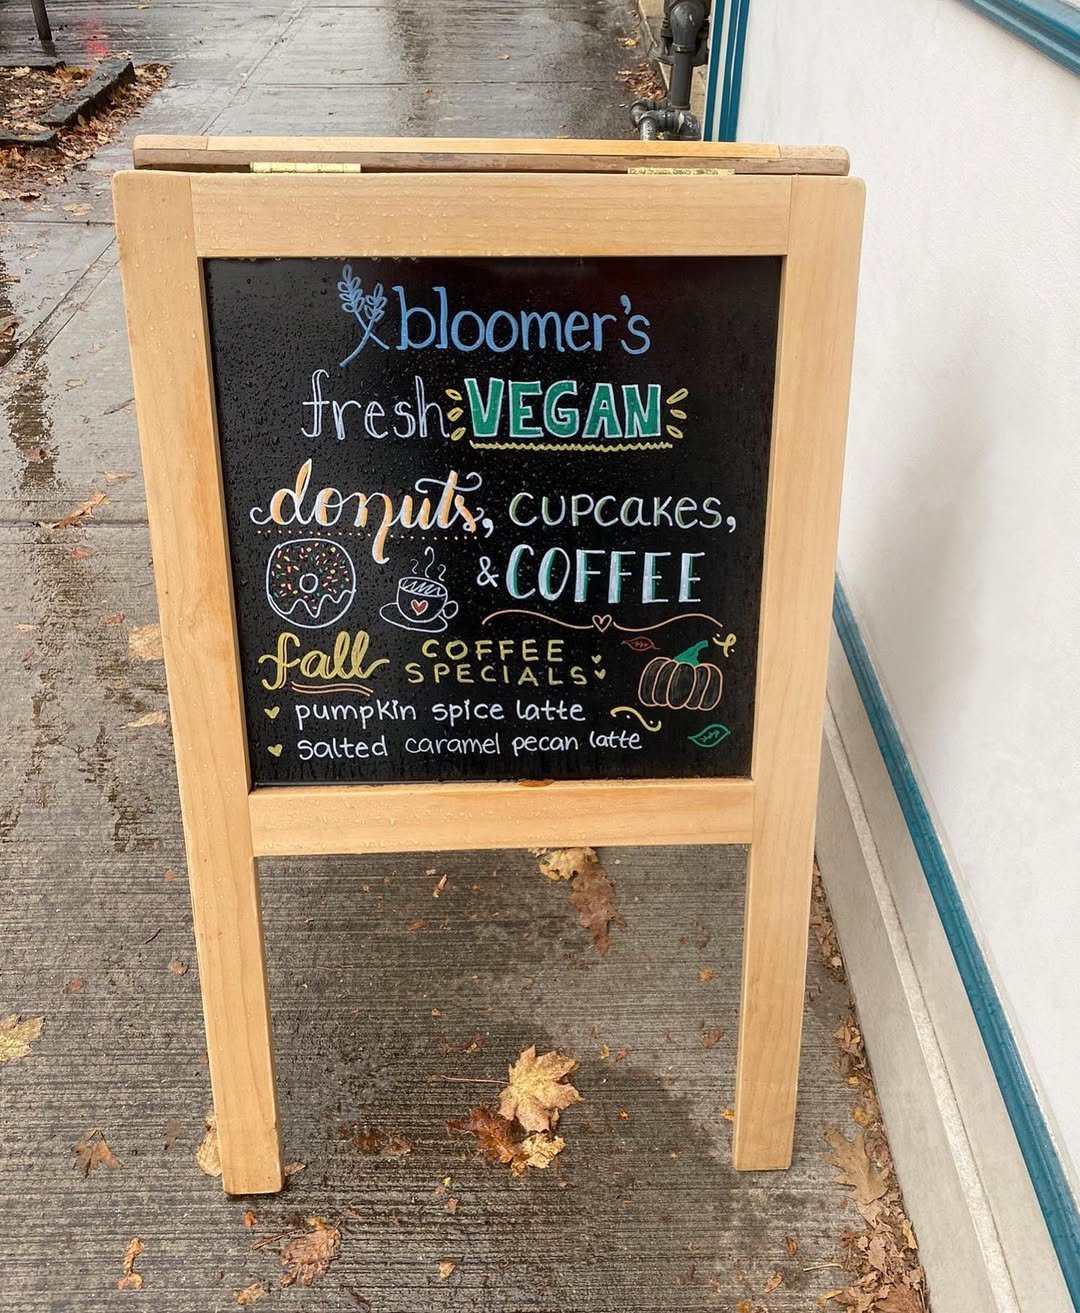 bloomer's
fresh VEGAN
donuts, CUPCAKES,
& COFFEE
fall COFFEE SPECIALS
pumpkin spice latte
salted caramel pecan latte